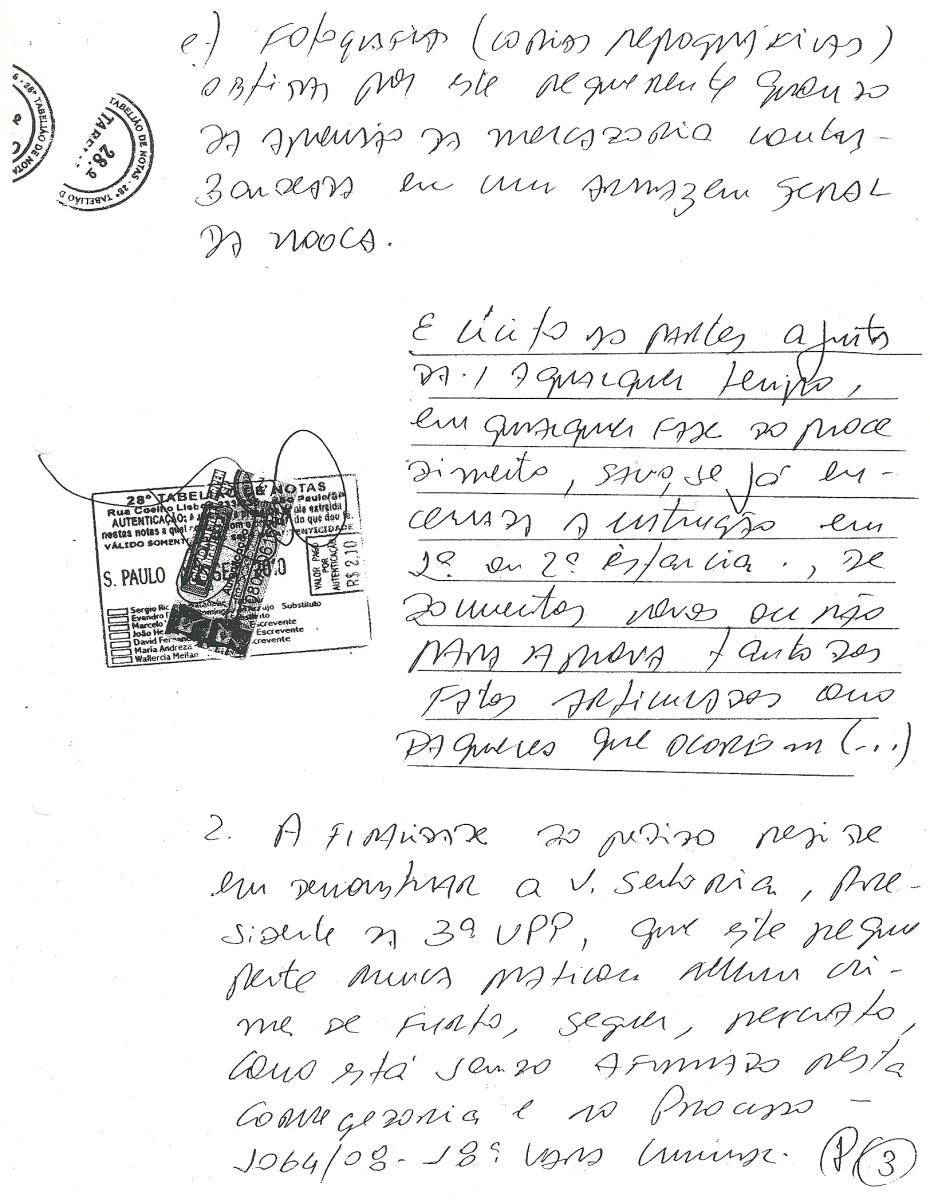 e.) Fotografias (copias reprográficas)
obtidas por este requerente quando
da apreensão da mercadoria contra-
bandeada em um armazem geral
da mooca.
TABELIÃO DE NOTAS - 28º TABELIÃO D
28.º
E lícito as partes a junta
da.1 a qualquer tempo,
em qualquer fase do proce
dimento, salvo, se já en-
cerrada a instrução em
1ª ou 2ª instancia., de
documentos novos ou não
para a prova tanto dos
fatos articulados como
daqueles que ocorrem (...)
28º TABELIÃO DE NOTAS
Rua Coelho Lisb São Paulo/SP
AUTENTICAÇÃO: A
nestas notas a qual do que dou fé.
VÁLIDO SOMENT AUTENTICIDADE
S. PAULO SE 2010
VALOR PAGO
POR
AUTENTICAÇÃO
R$ 2,10
Sergio Ric Substituto
Evandro
Marcelo Escrevente
João He Escrevente
David Fer Escrevente
Maria Andreza
Wallercia Meilan
2. A finalidade do pedido reside
em demonstrar a V. Senhoria, pre-
sidente da 3ª UPP, que este reque
rente nunca praticou nenhum cri-
me de furto, sequer, percusto,
como está sendo afirmado nesta
corregedoria e no Processo -
1064/08 - 18ª Vara Criminal. 3